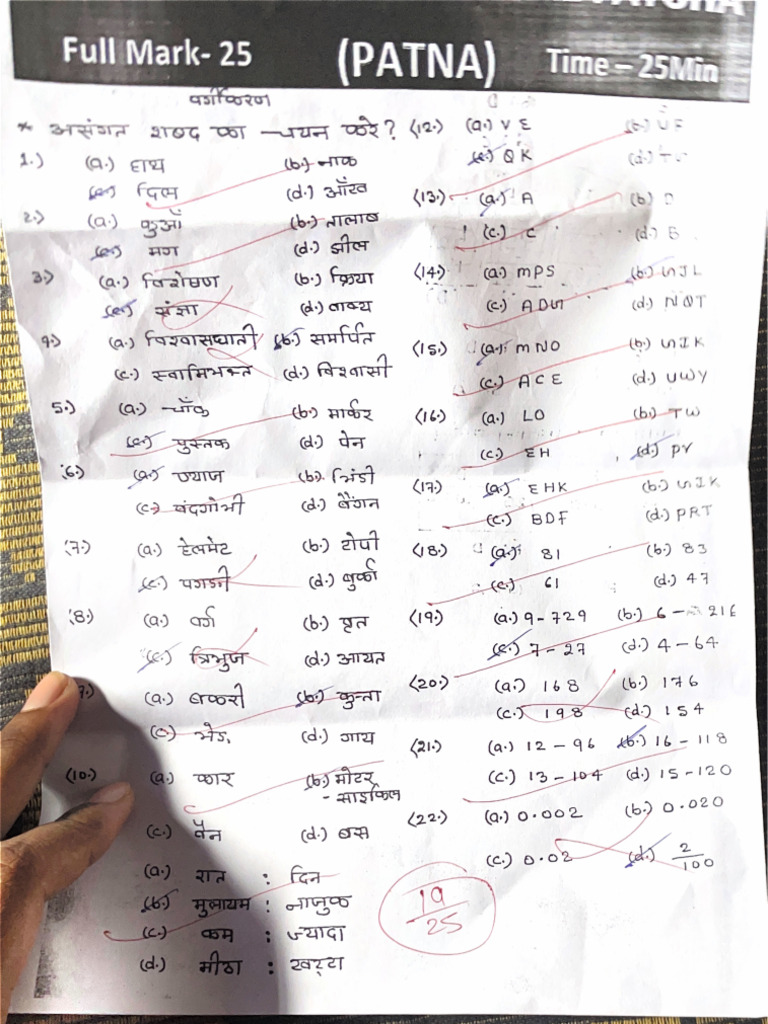 Full Mark- 25 (PATNA) Time – 25Min
वर्गीकरण
* असंगत शब्द का चयन करे?
1.) (a.) हाथ (b.) नाक
(c.) दिल (d.) आँख
2.) (a.) कुआँ (b.) तालाब
(c.) मग (d.) झील
3.) (a.) विशेषण (b.) क्रिया
(c.) संज्ञा (d.) वाक्य
4.) (a.) विश्वासघाती (b.) समर्पित
(c.) स्वामिभक्त (d.) विश्वासी
5.) (a.) चाँक (b.) मार्कर
(c.) पुस्तक (d.) पेन
(6.) (a.) प्याज (b.) भिंडी
(c.) बंदगोभी (d.) बैंगन
(7.) (a.) हेलमेट (b.) टोपी
(c.) पगड़ी (d.) बुर्का
(8.) (a.) वर्ग (b.) वृत
(c.) त्रिभुज (d.) आयत
(a.) बकरी (b.) कुत्ता
(c.) भेड़ (d.) गाय
(10.) (a.) कार (b.) मोटर
-साइकिल
(c.) वैन (d.) बस
(a.) रात : दिन
(b.) मुलायम : नाजुक
(c.) कम : ज्यादा
(d.) मीठा : खट्टा
(12.) (a.) VE (b.) UF
(c.) QK (d.)
(13.) (a.) A (b.) D
(c.) C (d.) B
(14.) (a.) MPS (b.) GJL
(c.) ADG (d.) NQT
(15.) (a.) MNO (b.) GIK
(c.) ACE (d.) UWY
(16.) (a.) LO (b.) TW
(c.) EH (d.) PV
(17.) (a.) EHK (b.) GIK
(c.) BDF (d.) PRT
(18.) (a.) 81 (b.) 83
(c.) 61 (d.) 47
(19.) (a.) 9-729 (b.) 6 - 216
(c.) 7-27 (d.) 4-64
(20.) (a.) 168 (b.) 176
(c.) 198 (d.) 154
(21.) (a.) 12 - 96 (b.) 16 - 118
(c.) 13 - 104 (d.) 15 - 120
(22.) (a.) 0.002 (b.) 0.020
(c.) 0.02 (d.) 2/100
19/25